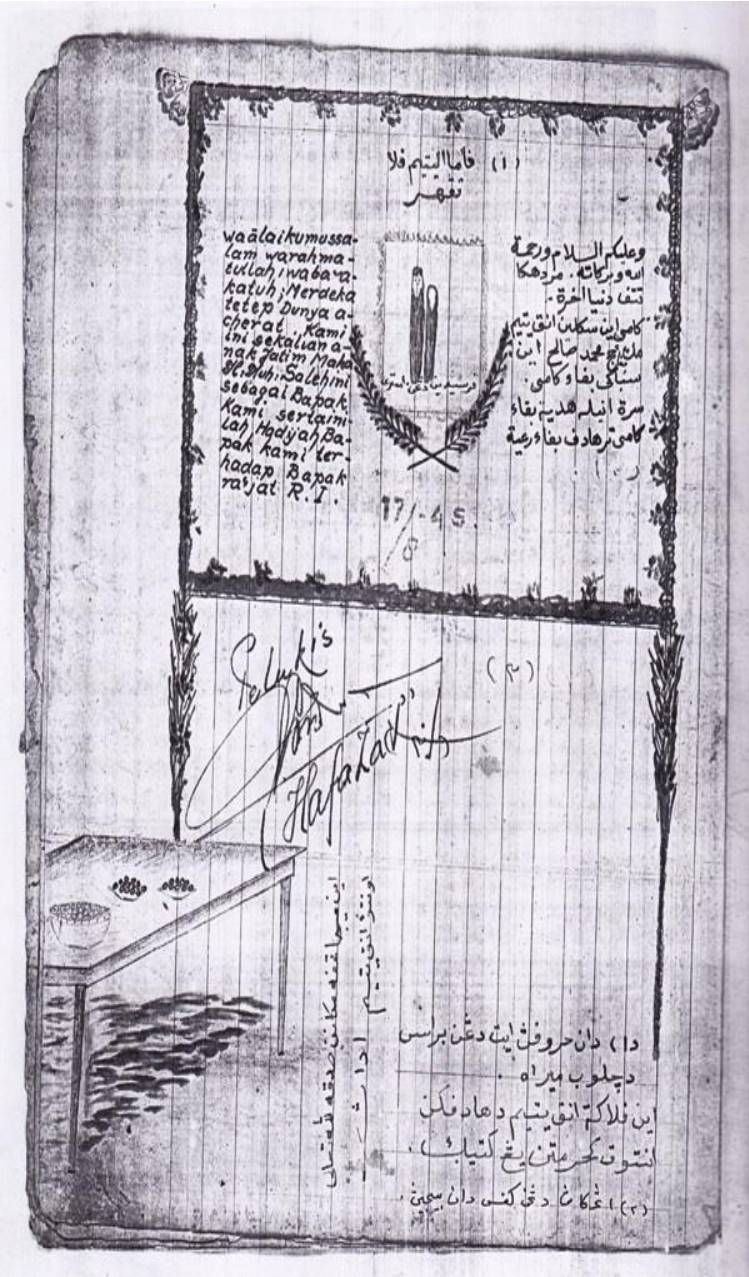 (١) فاما اليتيم فلا
تقهر
waälaikumussa-
lam warahma-
tullahi wabara-
katuh; Merdeka
tetep Dunya a-
cherat. Kami
ini sekalian a-
nak Jatim Maka
H. Muh. Saleh ini
sebagai Bapak
Kami sertaini-
lah Hadijah Ba-
pak kami ter-
hadap Bapak
ra'jat R.I.
وعليكم السلام ورحمة
الله وبركاته. مردهكا
تتف دنيا اخرة.
كامي اين سكلين انق يتيم
مك حج محمد صالح اين
سباكي بفاء كامي.
سرة انيله هدية بفاء
كامي ترهادف بفاء رعية
17/8-45.
Pelukis
(٣)
Hafa Zad
اين مكانن صدقه
اونتوق انق يتيم
(١) دان حروفڽ ايت دڠن براس
دچلوب ميراه.
اين فلاكة انق يتيم دهادفكن
انتوق كحرمتن يڠ كتيك.
(٢) اڠكاڽ دڠن كفس دان بيجيڽ.